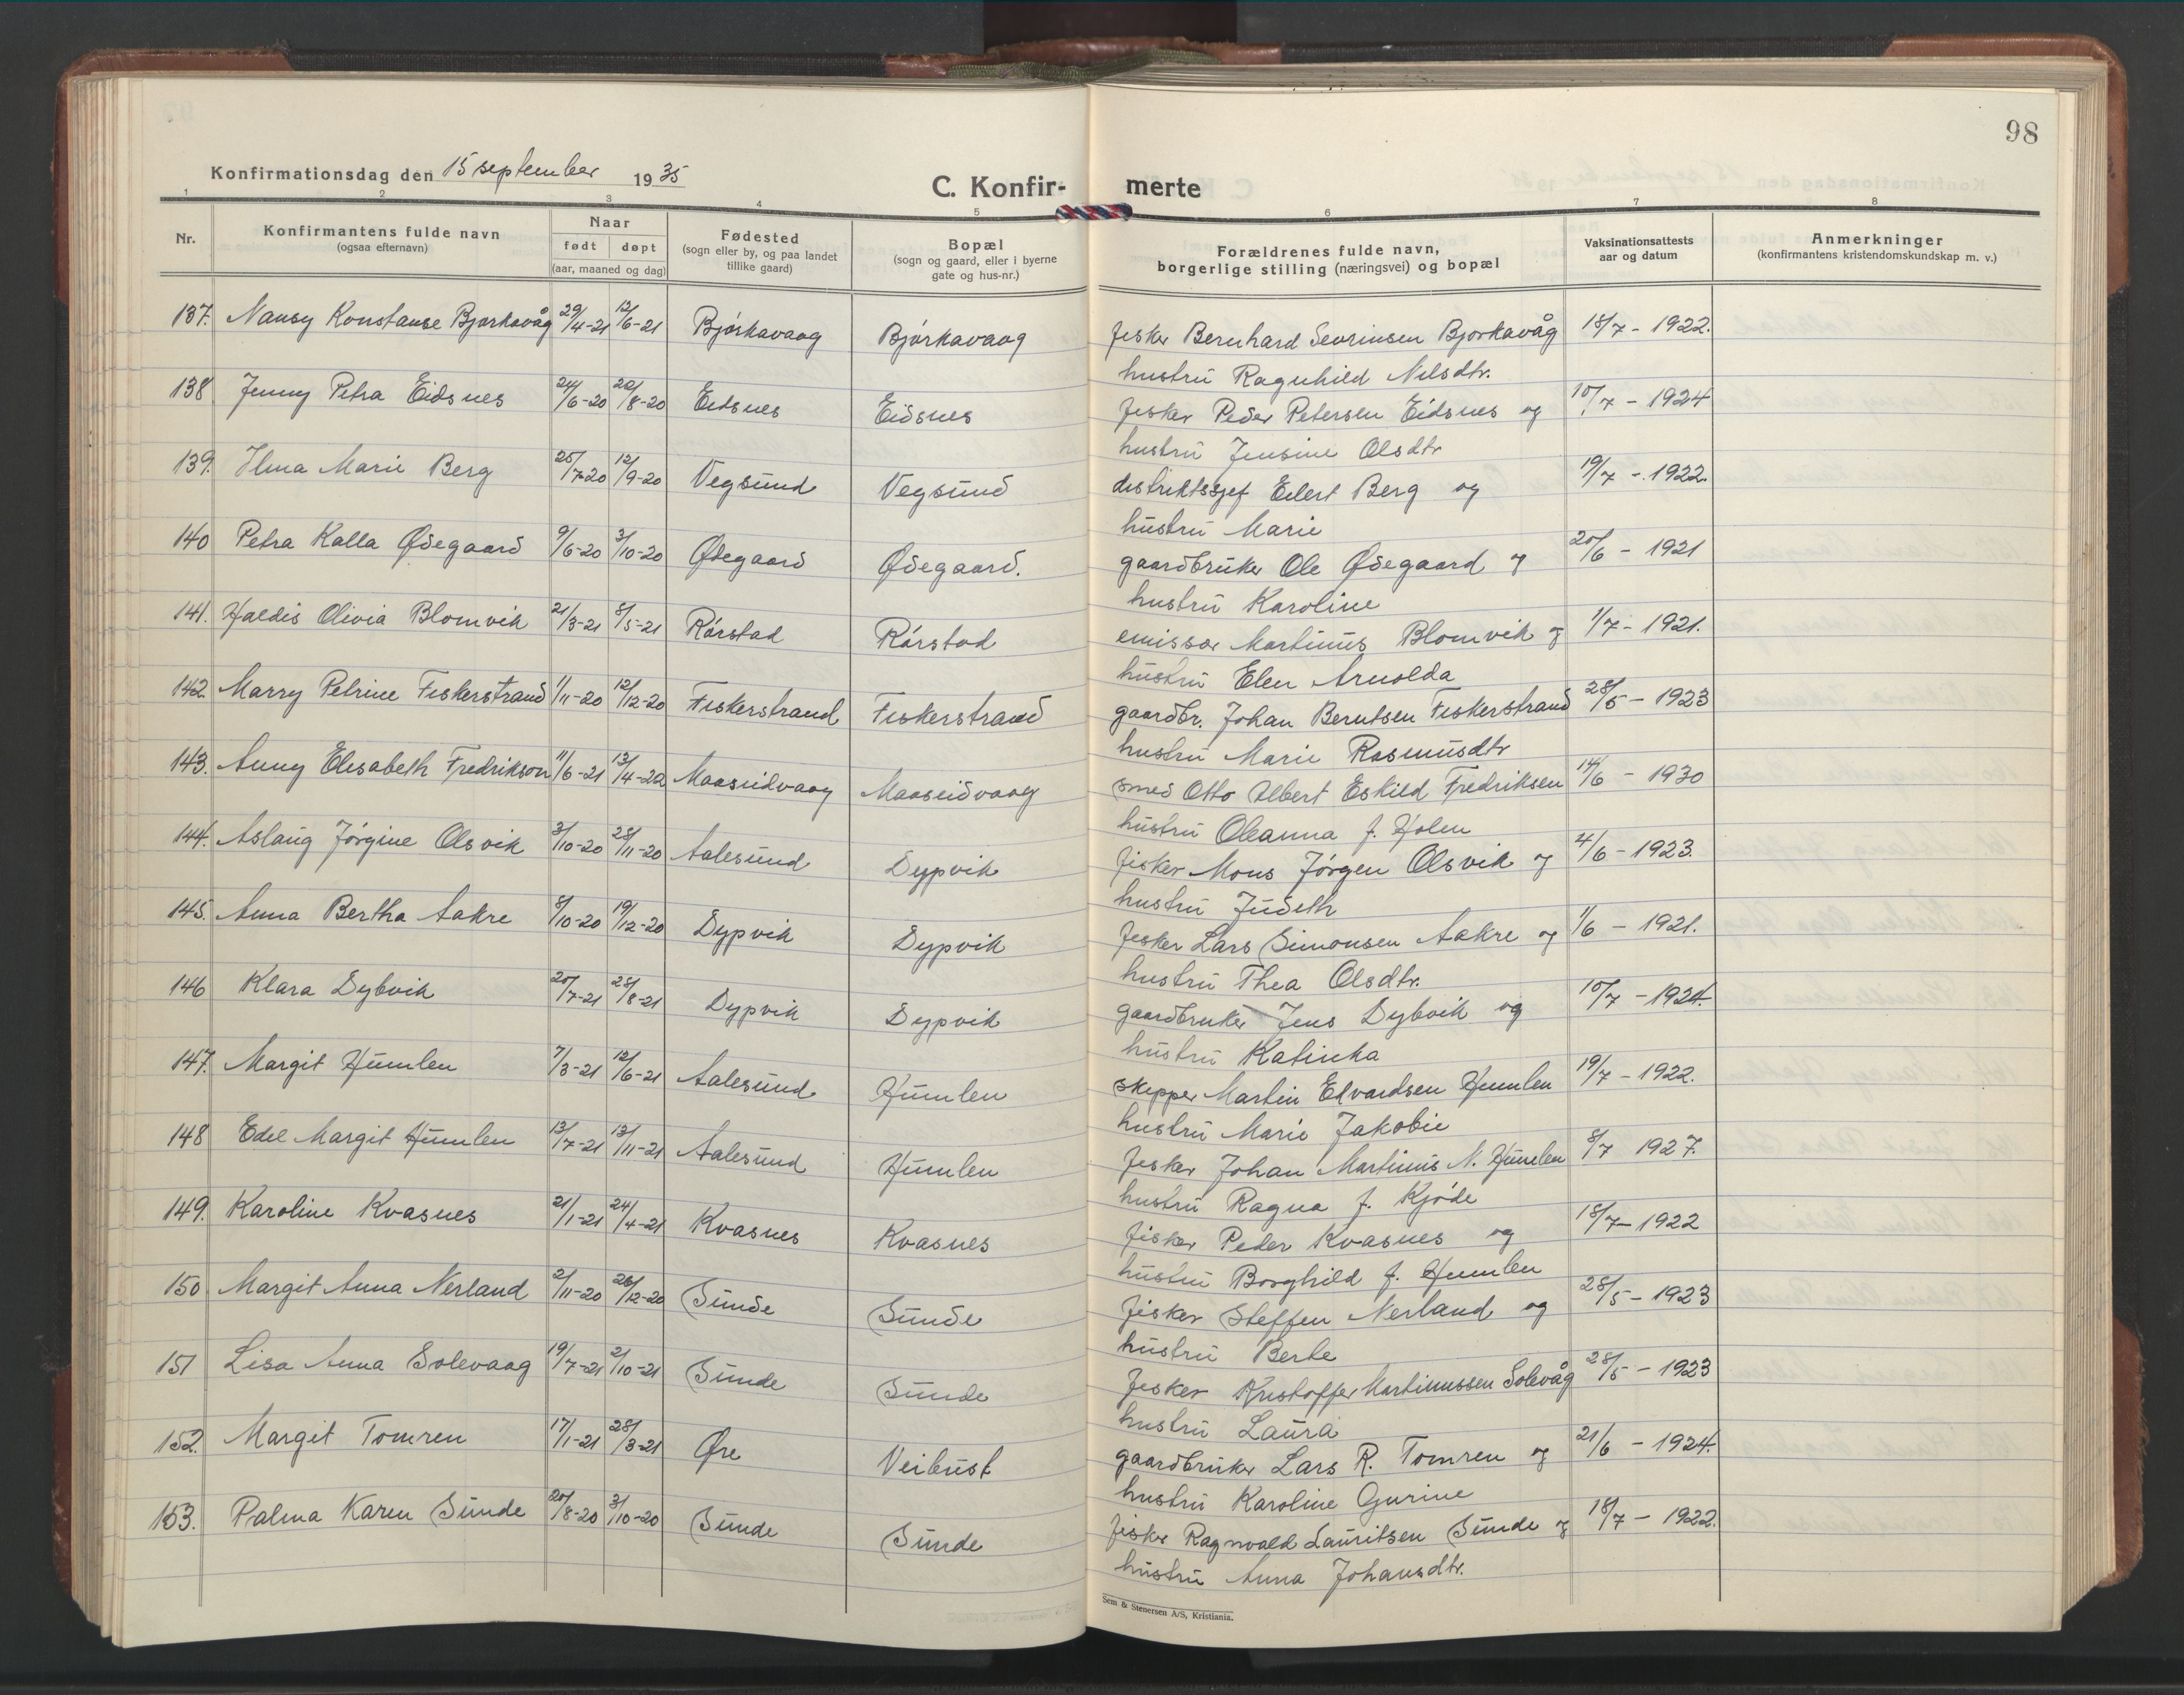 98
Konfirmationsdag den 15 september 1935
C. Konfir- merte
1 2 3 4 5 6 7 8
Nr.
Konfirmantens fulde navn
(ogsaa efternavn)
Naar
født døpt
(aar, maaned og dag)
Fødested
(sogn eller by, og paa landet
tillike gaard)
Bopæl
(sogn og gaard, eller i byerne
gate og hus-nr.)
Forældrenes fulde navn,
borgerlige stilling (næringsvei) og bopæl
Vaksinationsattests
aar og datum
Anmerkninger
(konfirmantens kristendomskundskap m. v.)
137. Nansy Konstanse Bjørkavåg 29/4-21 12/6-21 Bjørkavaag Bjørkavaag fisker Bernhard Sevrinsen Bjørkavåg 18/7 - 1922.
hustru Ragnhild Nilsdtr.
138 Jenny Petra Eidsnes 24/6-20 22/8-20 Eidsnes Eidsnes fisker Peder Petersen Eidsnes og 10/7 - 1924
hustru Jensine Olsdtr
139. Ilma Marie Berg 25/7-20 12/9-20 Vegsund Vegsund distriktssjef Eilert Berg og 19/7 - 1922.
hustru Marie
140 Petra Kalla Ødegaard 9/6-20 3/10-20 Ødegaard Ødegaard. gaardbruker Ole Ødegaard og 20/6 - 1921
hustru Karoline
141. Haldis Olivia Blomvik 21/3-21 8/5-21 Rørstad Rørstad emissær Martinus Blomvik og 1/7 - 1921.
hustru Elen Arnolda
142. Marry Petrine Fiskerstrand 1/11-20 12/12-20 Fiskerstrand Fiskerstrand gaardbr. Johan Berntsen Fiskerstrand 28/5 - 1923
hustru Marie Rasmusdtr
143. Anny Elisabeth Fredrikson 11/6-21 13/4-22 Maaseidvaag Maaseidvaag smed Otto Albert Eskild Fredriksen 14/6 - 1930
hustru Oleanna f. Holen
144. Aslaug Jørgine Olsvik 3/10-20 28/11-20 Aalesund Dypvik fisker Mons Jørgen Olsvik og 4/6 - 1923.
hustru Judeth
145. Anna Bertha Aakre 8/10-20 19/12-20 Dypvik Dypvik fisker Lars Simonsen Aakre og 1/6 - 1921.
hustru Thea Olsdtr.
146 Klara Dybvik 20/7-21 28/8-21 Dypvik Dypvik gaardbruker Jens Dybvik og 10/7 - 1924.
hustru Katinka
147. Margit Humlen 7/3-21 12/6-21 Aalesund Humlen skipper Martin Edvardsen Humlen 19/7 - 1922.
hustru Marie Jakobie
148 Edel Margit Humlen 13/7-21 13/11-21 Aalesund Humlen fisker Johan Martinus N. Humlen 8/7 1927.
hustru Ragna f. Kjøde
149. Karoline Kvasnes 21/1-21 24/4-21 Kvasnes Kvasnes fisker Peder Kvasnes og 18/7 - 1922
hustru Borghild f. Humlen
150 Margit Anna Nerland 2/11-20 26/12-20 Sunde Sunde fisker Steffen Nerland og 28/5 - 1923
hustru Berte
151 Lisa Anna Solevaag 19/7-21 2/10-21 Sunde Sunde fisker Kristoffer Martinussen Solevåg 28/5 - 1923
hustru Laura
152. Margit Tomren 17/1-21 28/3-21 Øre Veibust gaardbruker Lars R. Tomren og 21/6 - 1924.
hustru Karoline Gurine
153. Palma Karen Sunde 20/8-20 3/10-20 Sunde Sunde fisker Ragnvald Lauritsen Sunde og 18/7 - 1922.
hustru Anna Johansdtr.
Sem & Stenersen A/S, Kristiania.